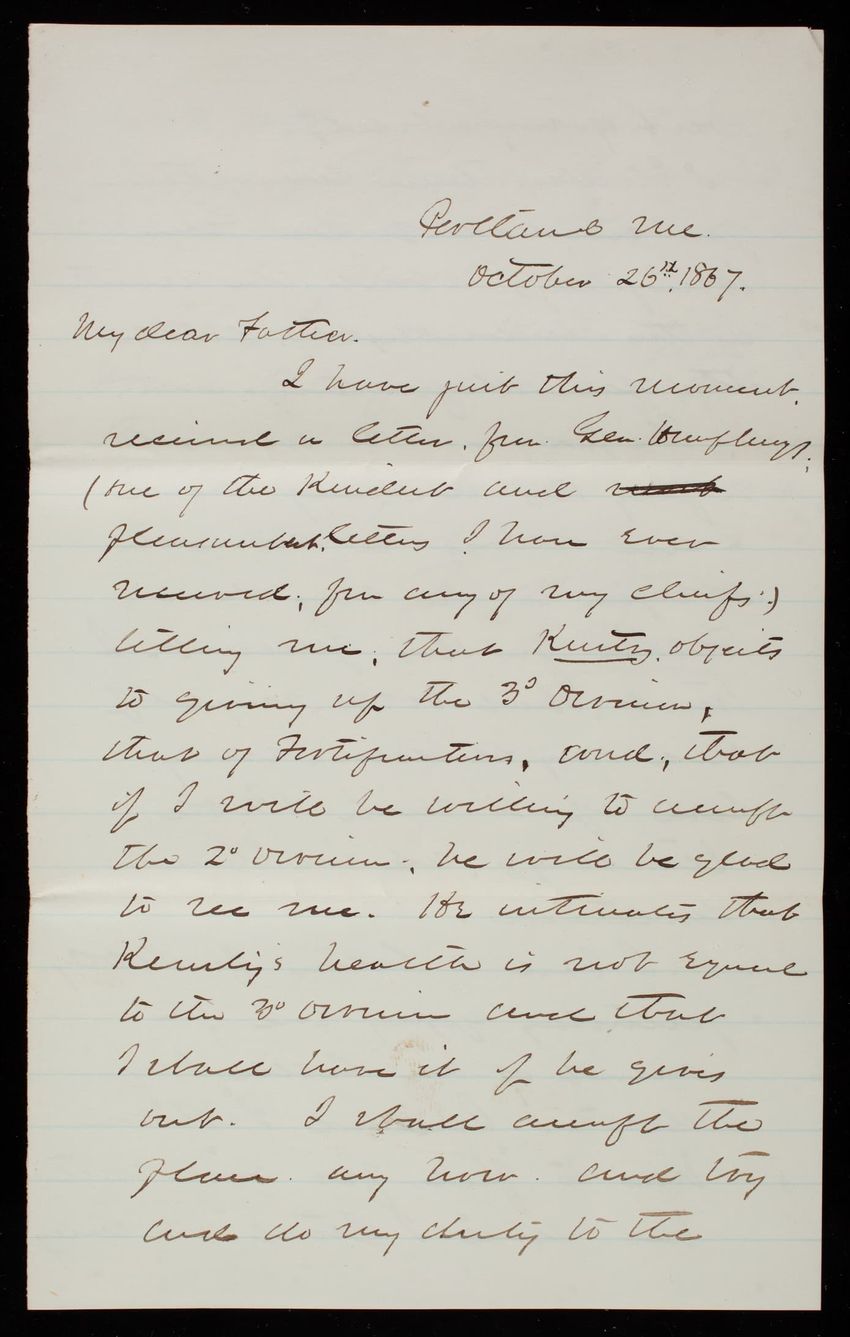 Portland Me.
October 26th, 1867.
My dear Father.
I have just this moment,
received a letter, from Gen. Humphreys,
(one of the Kindest and
pleasantest letters I have ever
received, from any of my chiefs.)
telling me, that Kurtz, objects
to giving up the 3d Division,
that of Fortifications, and, that
if I will be willing to accept
the 2d Division, he will be glad
to see me. He intimates that
Kurtz's health is not equal
to the 3d Division and that
I shall have it if he gives
out. I shall accept the
place any how. and try
and do my duty to the